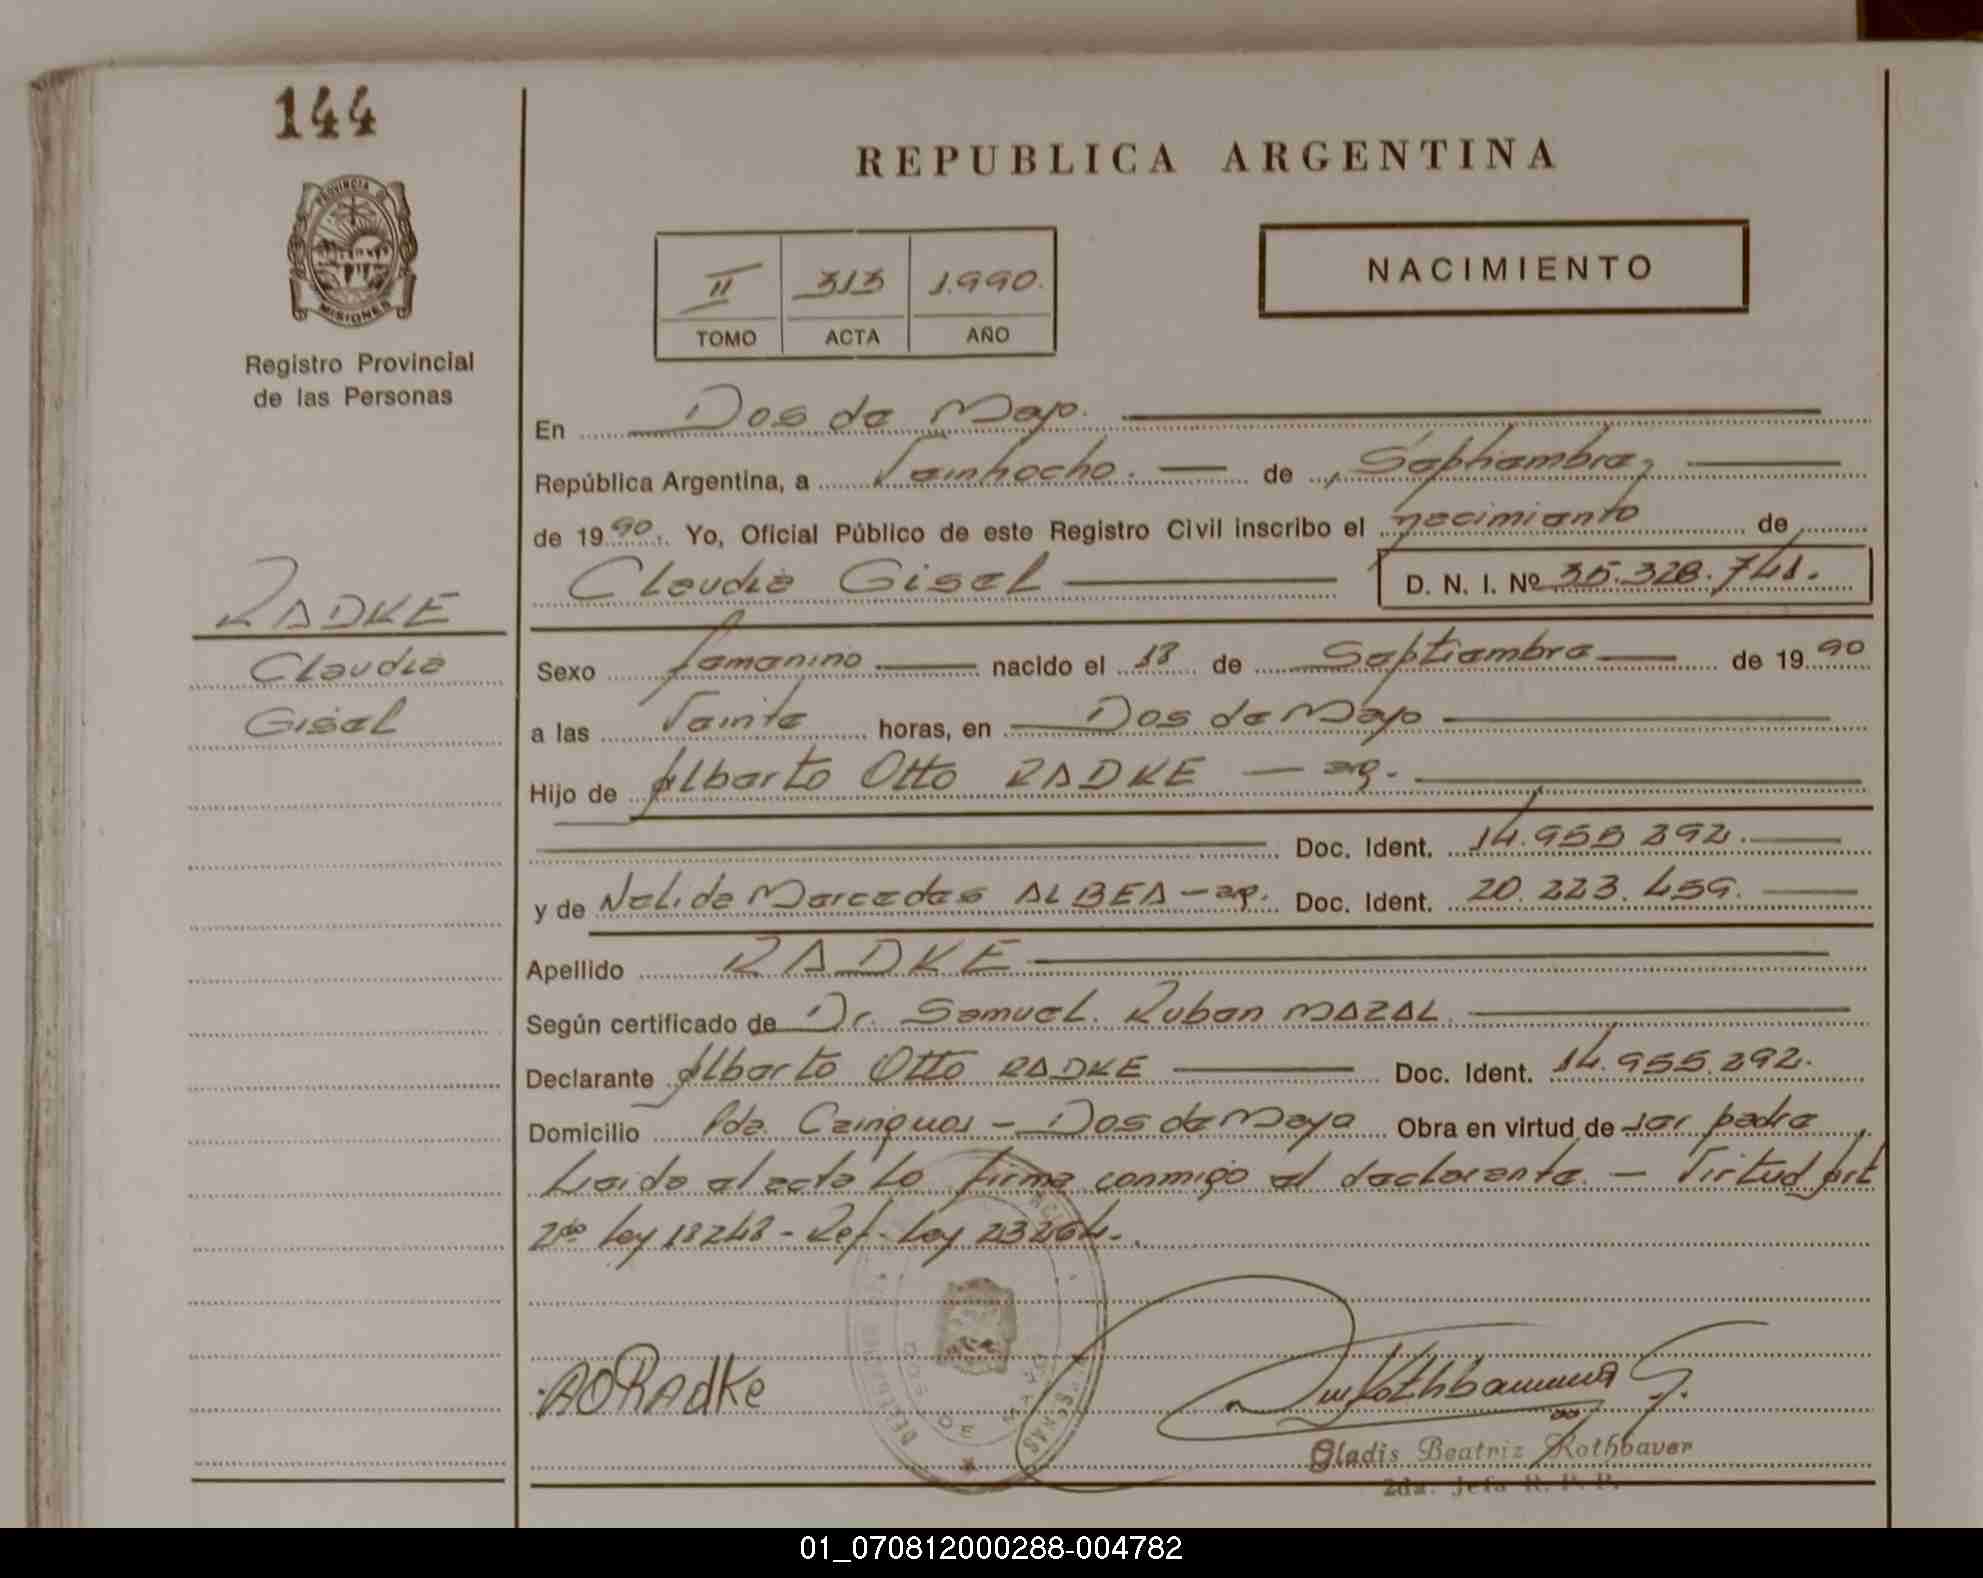 144
REPUBLICA ARGENTINA
PROVINCIA
MISIONES
Registro Provincial
de las Personas
II 313 1.990.
TOMO ACTA AÑO
NACIMIENTO
En Dos de Mayo.
República Argentina, a Veintiocho. de Septiembre,
de 1990. Yo, Oficial Público de este Registro Civil inscribo el nacimiento de
Claudia Gisel D. N. I. Nº 35.328.741.
RADKE
Claudia
Gisel
Sexo femenino nacido el 18 de Septiembre de 1990
a las Veinte horas, en Dos de Mayo
Hijo de Alberto Otto RADKE - ag.
Doc. Ident. 14.955.292.
y de Nelida Mercedes ALBEA - ag. Doc. Ident. 20.223.459.
Apellido RADKE
Según certificado de Dr. Samuel. Ruben MAZAL.
Declarante Alberto Otto RADKE Doc. Ident. 14.955.292.
Domicilio Pda. Cainguas - Dos de Mayo Obra en virtud de ser padre
Leida el acta lo firma conmigo el declarante. - Virtud Art
2do Ley 18248 - Ref. Ley 23264.
AORAdKe
DOS DE MAYO
Gladis Beatriz Rothbauer
2da. Jefa R. P. P.
01_070812000288-004782